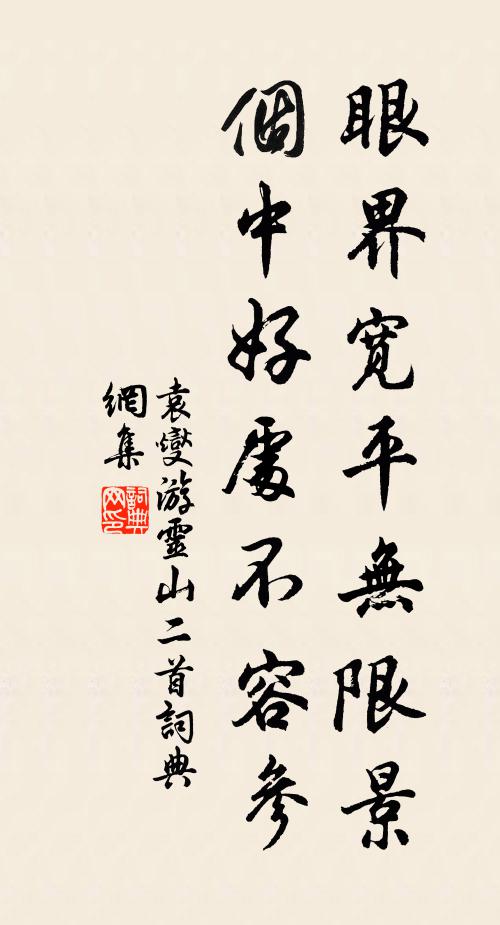 眼界寬平無限景
個中好處不容參
袁燮游靈山二首詞典
網集
詞典
网印